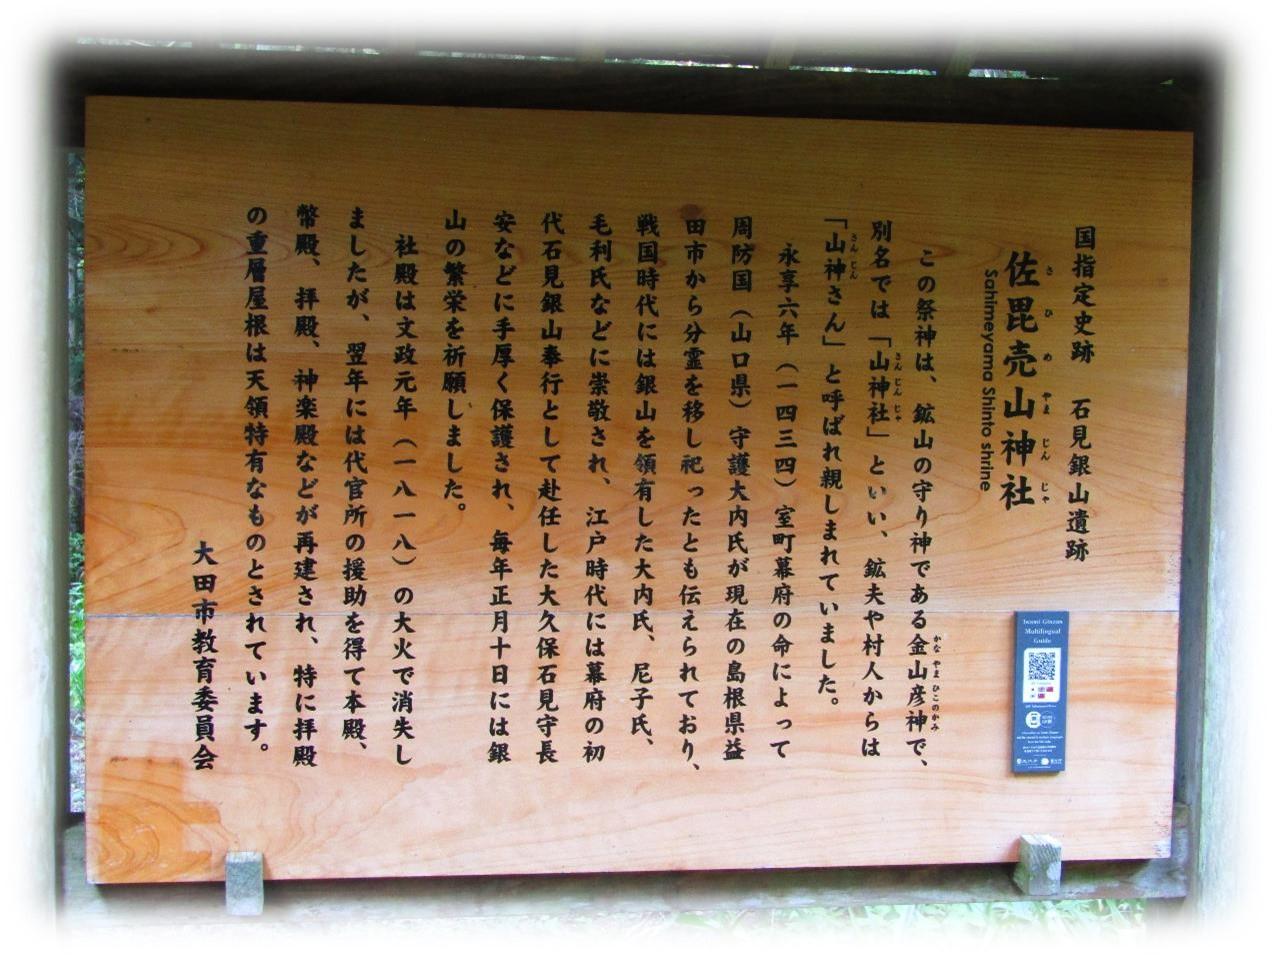 国指定史跡　石見銀山遺跡
佐毘売山神社
さひめやまじんじゃ
Sahimeyama Shinto shrine
この祭神は、鉱山の守り神である金山彦神で、
かなやまひこのかみ
別名では「山神社」といい、鉱夫や村人からは
さんじんじゃ
「山神さん」と呼ばれ親しまれていました。
さんじん
永享六年（一四三四）室町幕府の命によって
周防国（山口県）守護大内氏が現在の島根県益
田市から分霊を移し祀ったとも伝えられており、
戦国時代には銀山を領有した大内氏、尼子氏、
毛利氏などに崇敬され、江戸時代には幕府の初
代石見銀山奉行として赴任した大久保石見守長
安などに手厚く保護され、毎年正月十日には銀
山の繁栄を祈願しました。
社殿は文政元年（一八一八）の大火で消失し
ましたが、翌年には代官所の援助を得て本殿、
幣殿、拝殿、神楽殿などが再建され、特に拝殿
の重層屋根は天領特有なものとされています。
大田市教育委員会
Iwami Ginzan
Multilingual
Guide